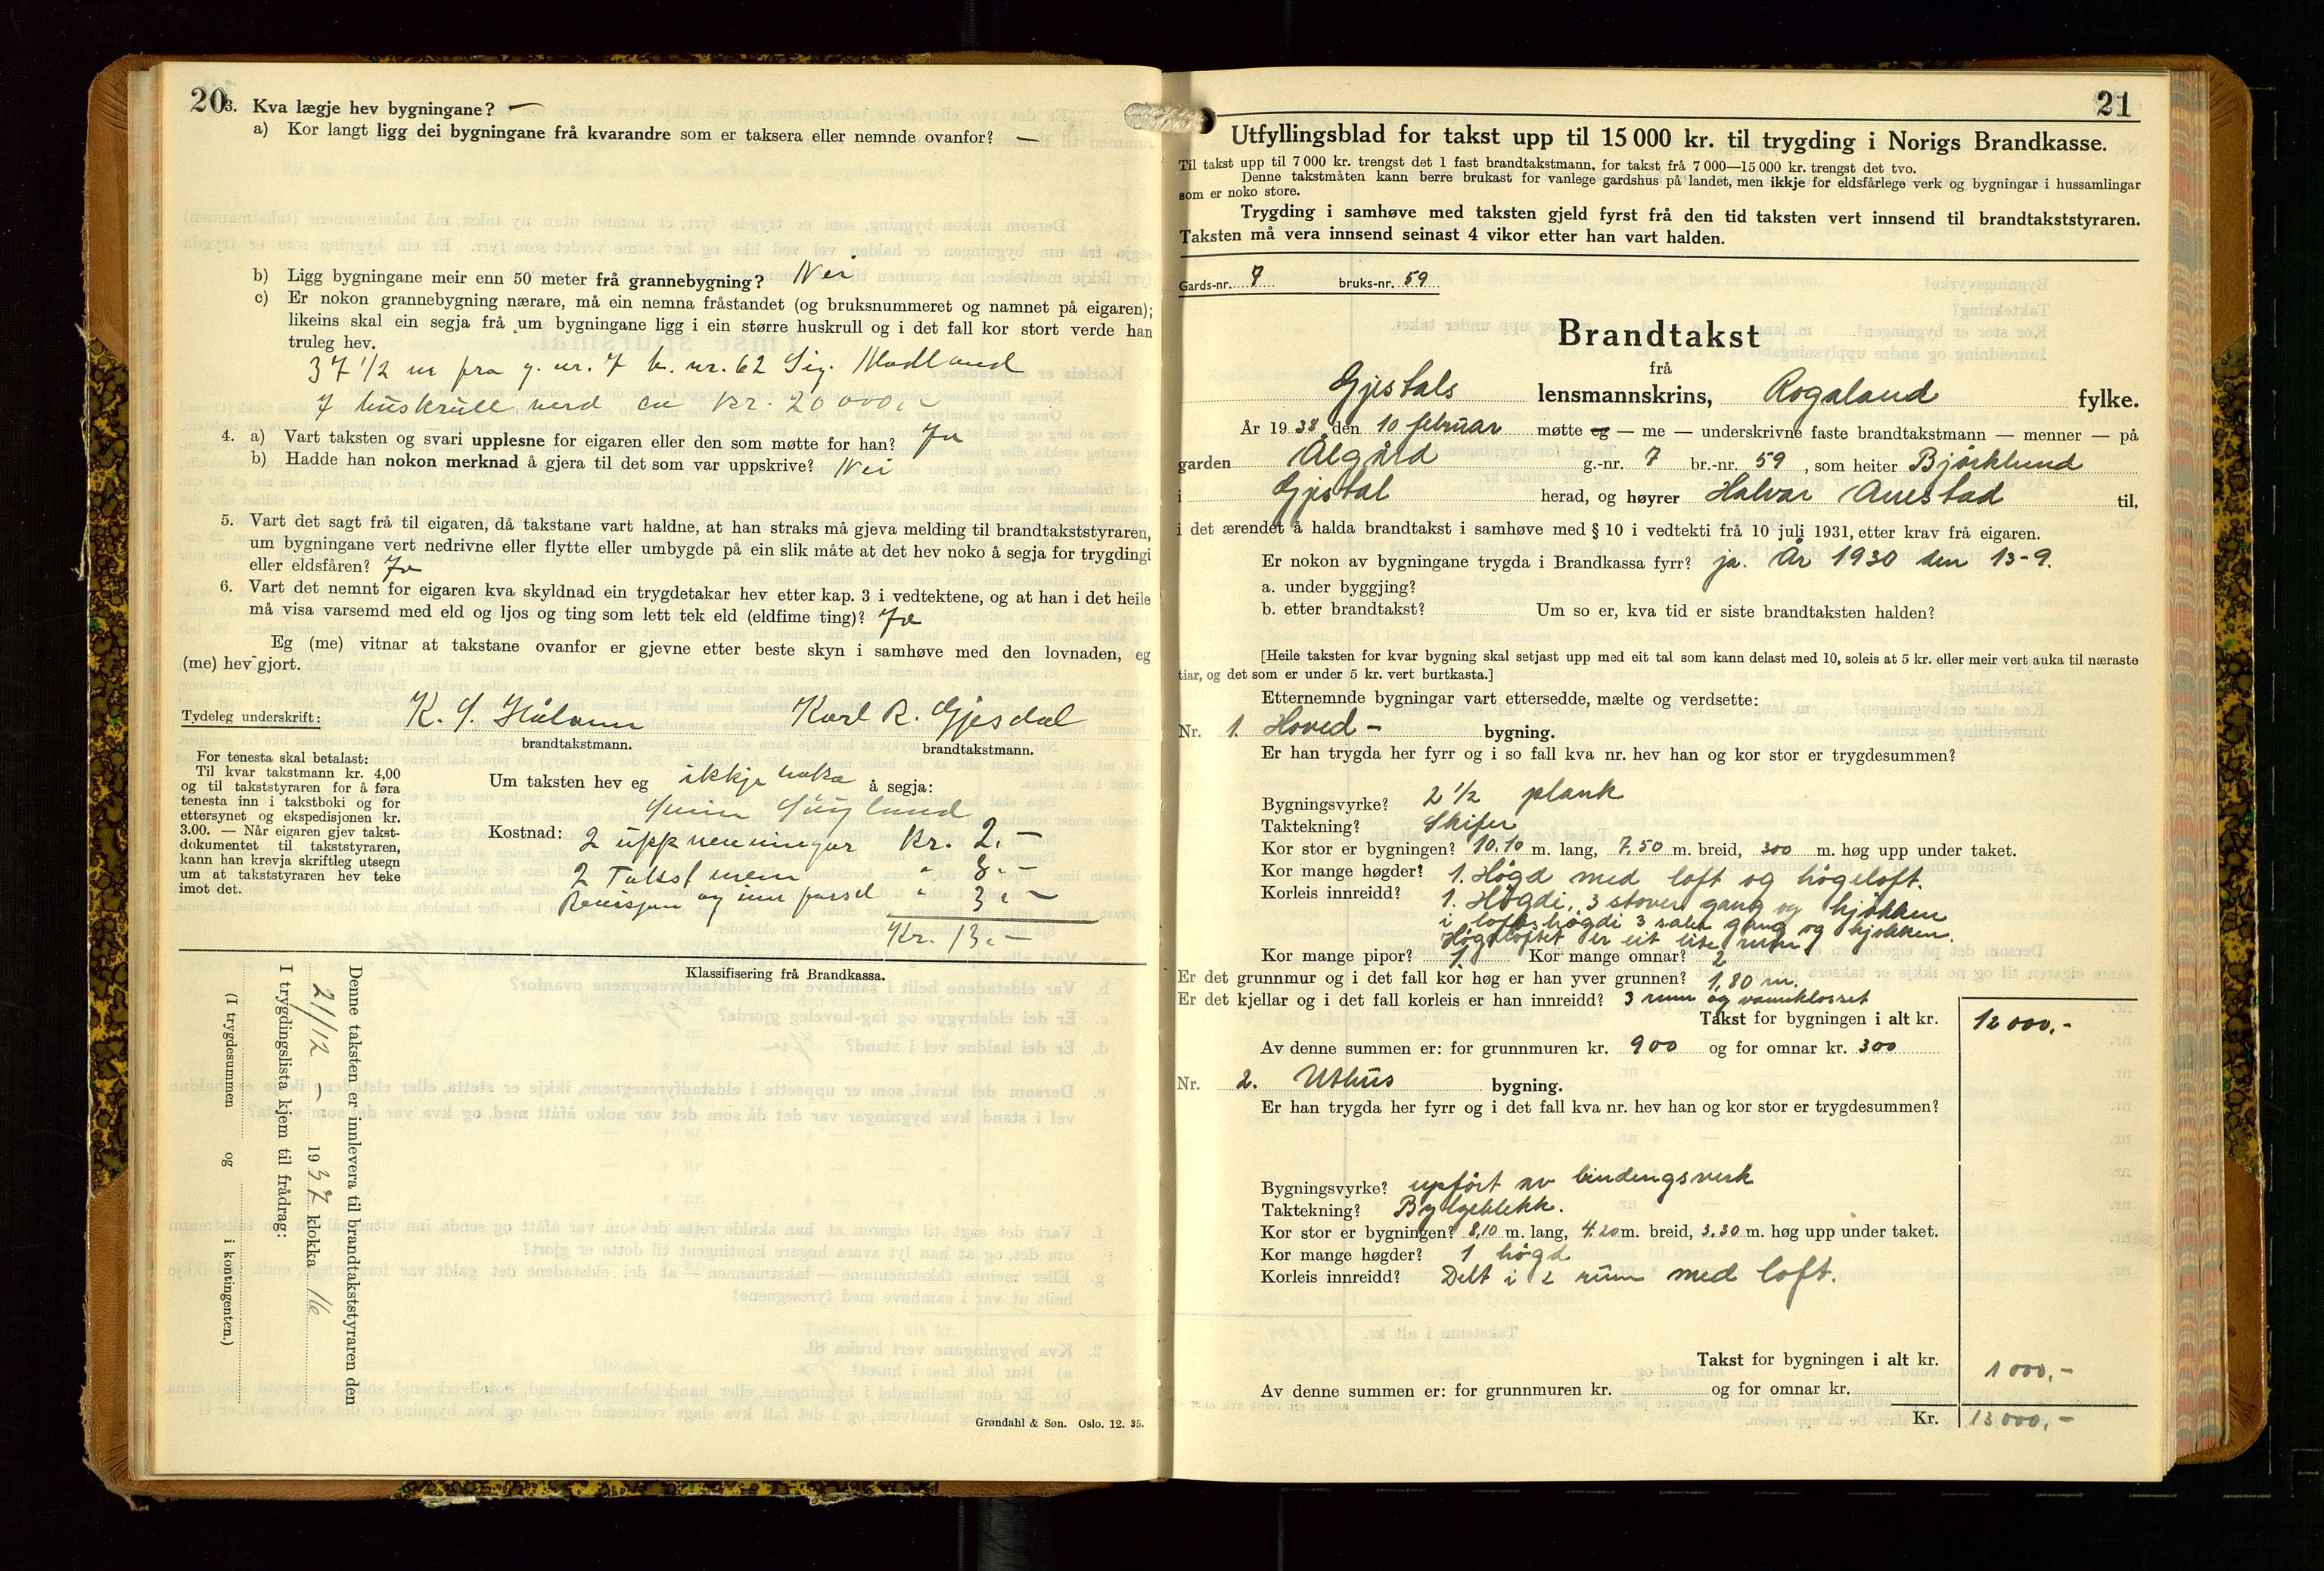 20
3. Kva lægje hev bygningane? —
a) Kor langt ligg dei bygningane frå kvarandre som er taksera eller nemnde ovanfor? —
b) Ligg bygningane meir enn 50 meter frå grannebygning? Nei
c) Er nokon grannebygning nærare, må ein nemna fråstandet (og bruksnummeret og namnet på eigaren);
likeins skal ein segja frå um bygningane ligg i ein større huskrull og i det fall kor stort verde han
truleg hev.
37 1/2 m fra g. nr. 7 b. nr. 62 Sig. Modland
I huskrull verd ca Kr. 20 000,-
4. a) Vart taksten og svari upplesne for eigaren eller den som møtte for han? Ja
b) Hadde han nokon merknad å gjera til det som var uppskrive? Nei
5. Vart det sagt frå til eigaren, då takstane vart haldne, at han straks må gjeva melding til brandtakststyraren,
um bygningane vert nedrivne eller flytte eller umbygde på ein slik måte at det hev noko å segja for trygdingi
eller eldsfåren? Ja
6. Vart det nemnt for eigaren kva skyldnad ein trygdetakar hev etter kap. 3 i vedtektene, og at han i det heile
må visa varsemd med eld og ljos og ting som lett tek eld (eldfime ting)? Ja
Eg (me) vitnar at takstane ovanfor er gjevne etter beste skyn i samhøve med den lovnaden, eg
(me) hev gjort.
Tydeleg underskrift: K. S. Karl R. Gjesdal
brandtakstmann. brandtakstmann.
For tenesta skal betalast:
Til kvar takstmann kr. 4,00
og til takststyraren for å føra
tenesta inn i takstboki og for
ettersynet og ekspedisjonen kr.
3.00. — Når eigaren gjev takst-
dokumentet til takststyraren,
kann han krevja skriftleg utsegn
um at takststyraren hev teke
imot det.
Um taksten hev eg ikkje noko å segja:
Kostnad: 2 uppnemningar Kr. 2,—
2 Takstmenn " 8,—
Revisjon og inn " 3,—
Kr. 13,—
Klassifisering frå Brandkassa.
Denne taksten er innlevera til brandtakststyraren den
21/12 — 1937 klokka 16
I trygdingslista kjem til frådrag:
(I trygdesummen og i kontingenten.)
Grøndahl & Søn. Oslo. 12. 35.
21
Utfyllingsblad for takst upp til 15 000 kr. til trygding i Norigs Brandkasse.
Til takst upp til 7 000 kr. trengst det 1 fast brandtakstmann, for takst frå 7 000—15 000 kr. trengst det tvo.
Denne takstmåten kann berre brukast for vanlege gardshus på landet, men ikkje for eldsfårlege verk og bygningar i hussamlingar
som er noko store.
Trygding i samhøve med taksten gjeld fyrst frå den tid taksten vert innsend til brandtakststyraren.
Taksten må vera innsend seinast 4 vikor etter han vart halden.
Gards-nr. 7 bruks-nr. 59
Brandtakst
frå
Gjestals lensmannskrins, Rogaland fylke.
År 1938 den 10 februar møtte eg — me — underskrivne faste brandtakstmann — menner — på
garden Ålgård g.-nr. 7 br.-nr. 59, som heiter Björklund
i Gjestal herad, og høyrer Halvar Auestad til,
i det ærendet å halda brandtakst i samhøve med § 10 i vedtekti frå 10 juli 1931, etter krav frå eigaren.
Er nokon av bygningane trygda i Brandkassa fyrr? ja. År 1930 den 13-9.
a. under byggjing?
b. etter brandtakst? Um so er, kva tid er siste brandtaksten halden?
[Heile taksten for kvar bygning skal setjast upp med eit tal som kann delast med 10, soleis at 5 kr. eller meir vert auka til næraste
tiar, og det som er under 5 kr. vert burtkasta.]
Etternemnde bygningar vart ettersedde, mælte og verdsette:
Nr. 1. Hoved- bygning.
Er han trygda her fyrr og i so fall kva nr. hev han og kor stor er trygdesummen?
Bygningsvyrke? 2 1/2 plank
Taktekning? Skifer
Kor stor er bygningen? 10,10 m. lang, 7,50 m. breid, 300 m. høg upp under taket.
Kor mange høgder? 1. Högd med loft og högeloft.
Korleis innreidd? 1. Högdi, 3 stover gang og kjökken
i loftshögdi 3 saler gang og kjökken.
Högeloftet er eit lite rum
Kor mange pipor? 1 Kor mange omnar? 2
Er det grunnmur og i det fall kor høg er han yver grunnen? 1,80 m.
Er det kjellar og i det fall korleis er han innreidd? 3 rum og vannklosset
Takst for bygningen i alt kr. 12 000,-
Av denne summen er: for grunnmuren kr. 900 og for omnar kr. 300
Nr. 2. Uthus bygning.
Er han trygda her fyrr og i det fall kva nr. hev han og kor stor er trygdesummen?
Bygningsvyrke? upfört av bindengsverk
Taktekning? Bylgeblekk.
Kor stor er bygningen? 8,10 m. lang, 4.20 m. breid, 3.30 m. høg upp under taket.
Kor mange høgder? 1 högd
Korleis innreidd? Delt i 2 rum med loft.
Takst for bygningen i alt kr. 1 000,-
Av denne summen er: for grunnmuren kr. og for omnar kr.
Kr. 13 000,-